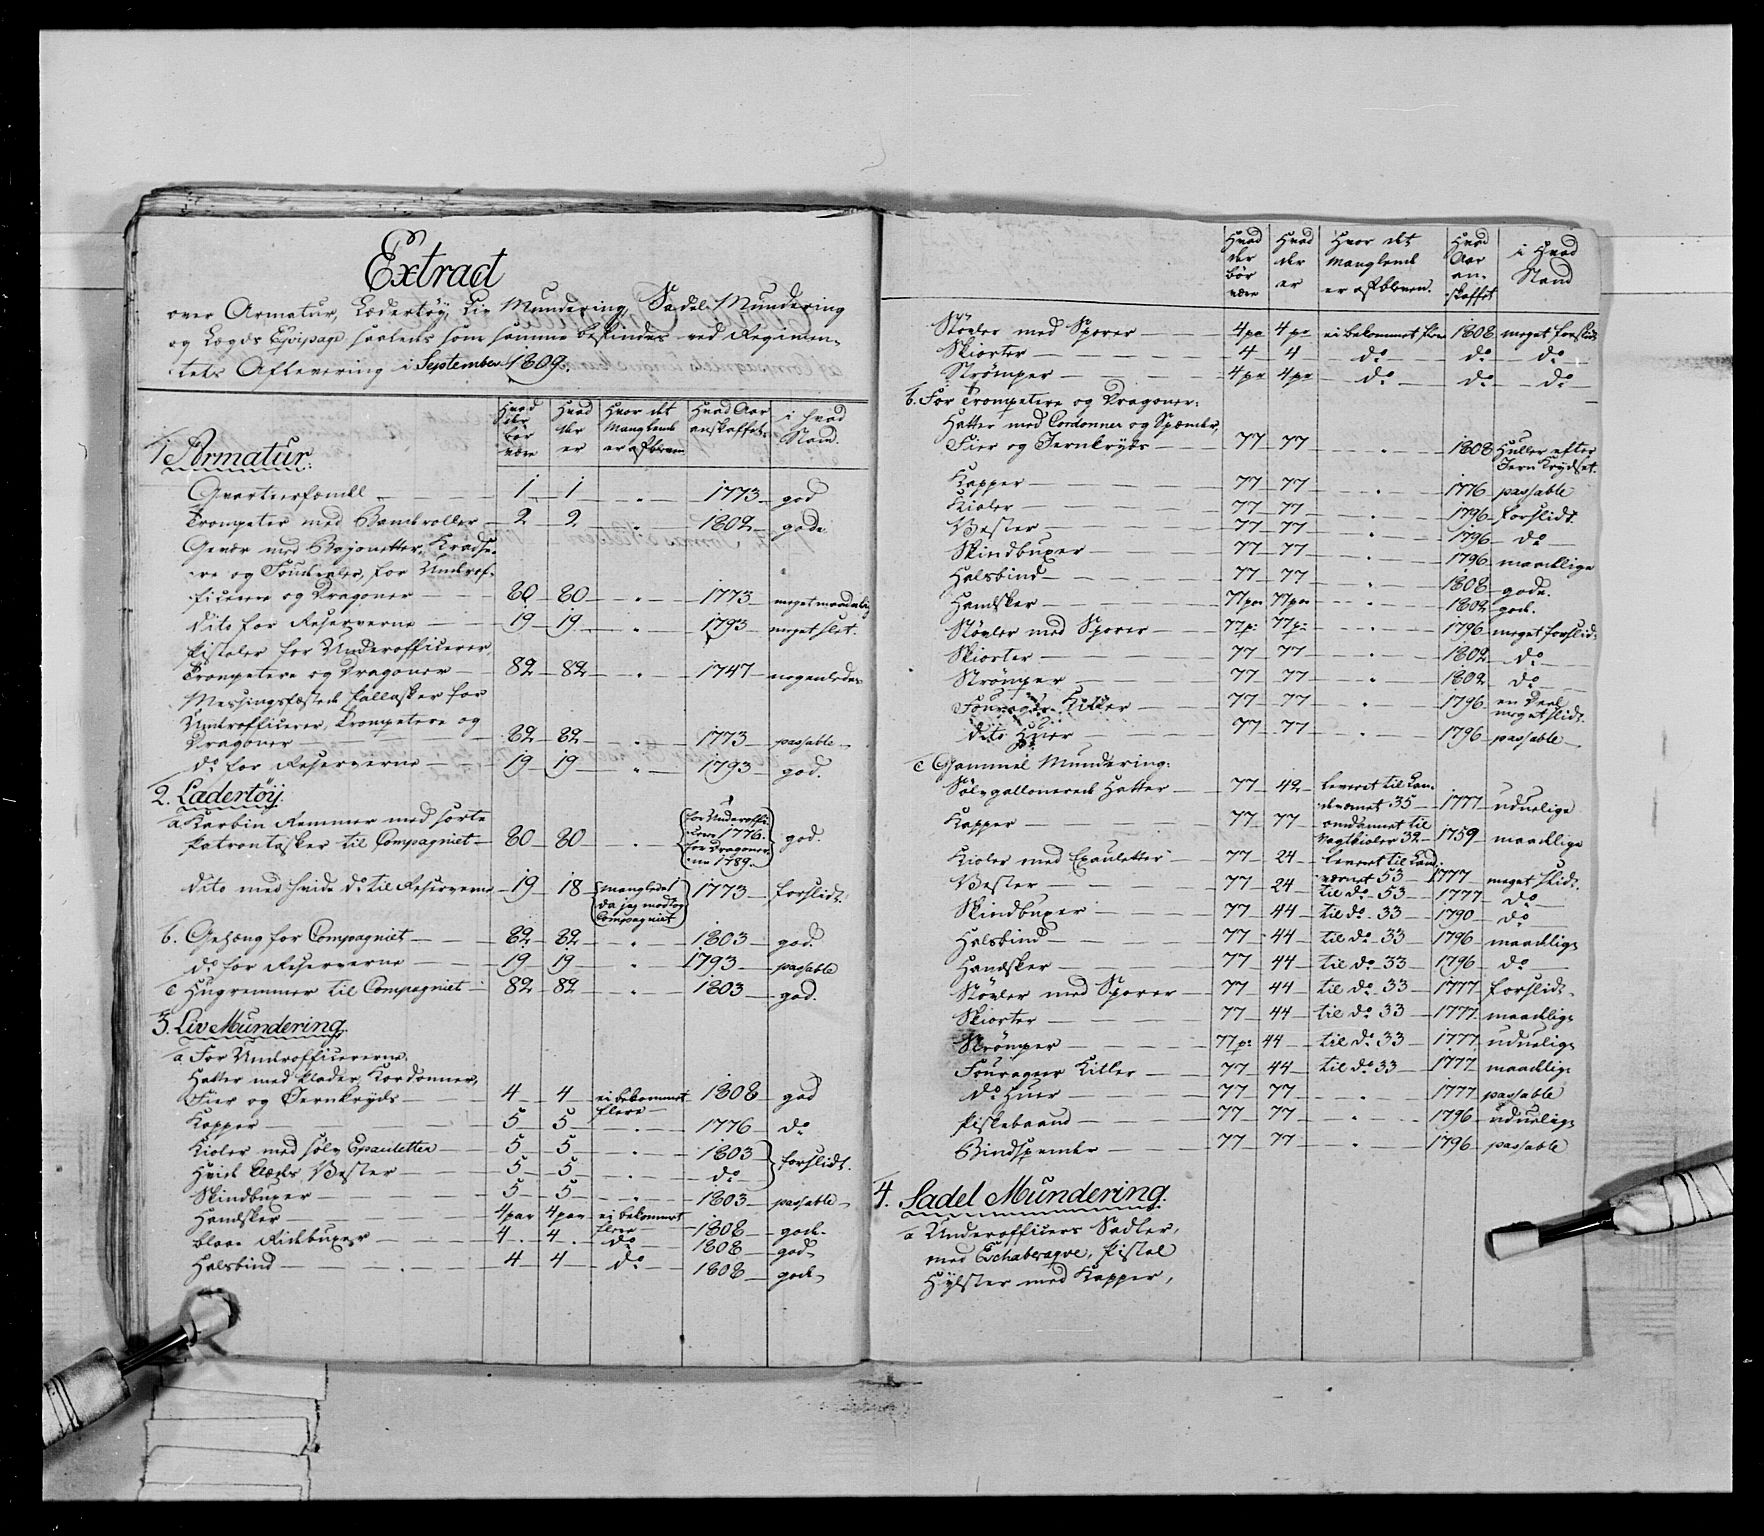 Extract
over Armatur, Lædertøy, Liv Mundering, Sadel Mundering
og Lægds Eqvipage saaledes som samme befindes ved Regimen-
tets Aflevering i September 1809.
Hvad der bør være | Hvad der er | Hvor det manglende er afbleven | Hvad Aar anskaffet | i hvad Stand.
1 Armatur.
1 1 " 1773 god
Trompeter med 2 2 " 1802 gode
Gevær med Bajonetter, Kradse-
re og for Underof-
ficerere og Dragoner 80 80 " 1773 meget maadelig
dito for Reserverne 19 19 " 1793 meget slet.
Pistoler for Underofficerer,
Trompetere og Dragoner 82 82 " 1747
Messingfæstede Pallasker for
Underofficerer, Trompetere og
Dragoner 82 82 " 1773 passable
do for Reserverne 19 19 " 1793 god.
2. Ladertöy.
a Karbin Remmer med sorte
Patrontasker til Compagniet 80 80 " for Underofficerer 1776. for Dragonerne 1789. god.
dito med hvide do til Reserverne 19 18 mangledes da jeg modtog Compagniet 1773 forslidt.
b. Gehæng for Compagniet 82 82 " 1803 god.
do for Reserverne 19 19 " 1793 passable
c Hugremmer til Compagniet 82 82 " 1803 god.
3. Liv Mundering.
a For Underofficererne.
Hatter med Kordonner,
Fier og Jernkryds 4 4 ei bekommet flere 1808 god
Kapper 5 5 " 1776 do
Kioler med sølv Epauletter 5 5 " 1803 forslidt.
Hvide Klædes Vester 5 5 " do
Skindbuxer 5 5 " 1803 passable
Handsker 4 par 4 par ei bekommet flere 1808 gode
blaae Ridebuxer 4 4 do 1808 gode
Halsbind 4 4 do 1808 gode
Hvad der bør være | Hvad der er | Hvor det manglende er afbleven. | Hvad Aar anskaffet | i Hvad Stand
Støvler med Sporer 4 pa 4 pa ei bekommet flere 1808 meget forslidt
Skiorter 4 4 do do do
Strømper 4 par 4 par do do do
b. For Trompetere og Dragoner:
Hatter med Cordonner og Spænder,
Fier og Jernkryds 77 77 " 1808 Huller efter Jern Krydset.
Kapper 77 77 " 1776 passable
Kioler 77 77 " 1796 forslidt.
Vester 77 77 " 1796 do
Skindbuxer 77 77 " 1796 maadelige
Halsbind 77 77 " 1808 gode.
Handsker 77 par 77 par " 1802 god.
Støvler med Sporer 77 p: 77 p: " 1796 meget forslidt
Skiorter 77 77 " 1802 do
Strømper 77 77 " 1802 do
Fourageer Kitler 77 77 " 1796 en Deel meget slidt.
dito Huer 77 77 " 1796 passable
c Gammel Mundering:
Sølvgallonerede Hatter 77 42 leveret til Landeværnet 35 1777 uduelige
Kapper 77 77 omdannet til Vagtkioler 32 1759 maadelige
Kioler med Epauletter 77 24 leveret til Landeværnet 53 1777 meget slidt.
Vester 77 24 til do 53 1777 do
Skindbuxer 77 44 til do 33 1790 do
Halsbind 77 44 til do 33 1796 maadelige
Handsker 77 44 til do 33 1796 do
Støvler med Sporer 77 44 til do 33 1777 forslidt
Skiorter 77 44 til do 33 1777 maadelige
Strømper 77 p: 44 til do 33 1777 uduelige
Fourageer Kitler 77 44 til do 33 1777 maadelige
do Huer 77 77 " 1777 passable
Piskebaand 77 77 " 1796 uduelige
Bindspender 77 77 " 1796 passable
4. Sadel Mundering.
a Underofficers Sadler,
med Schabraqve, Pistol
Hylster med Kapper,